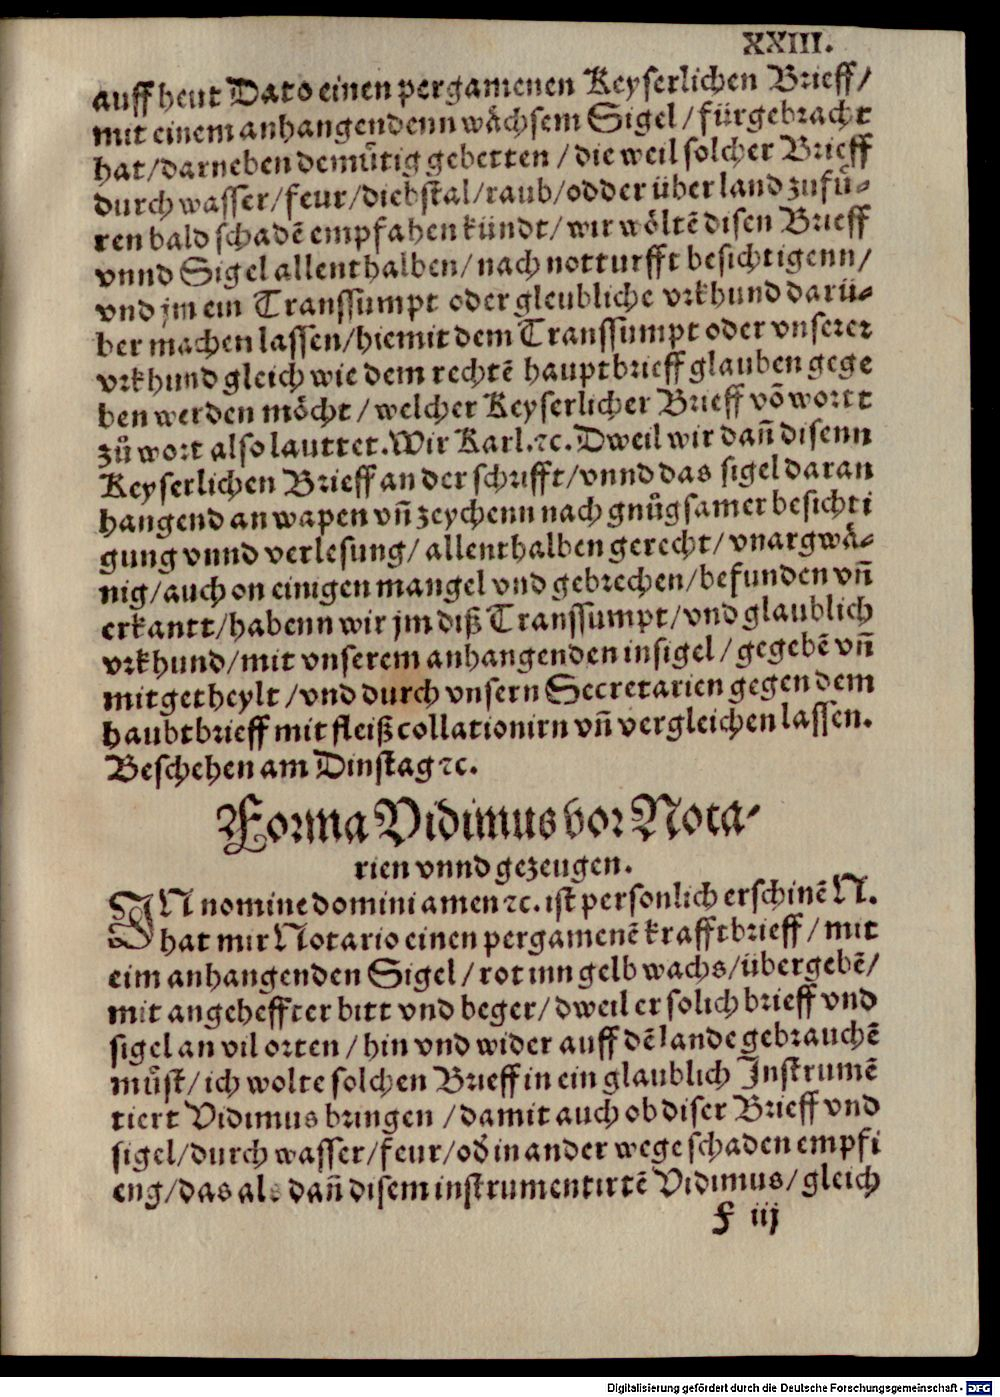 XXIII.
auff heut Dato einen pergamenen Keyserlichen Brieff/
mit einem anhangendenn wåchsem Sigel/fürgebracht
hat/darneben demůtig gebetten/die weil solcher Brieff
durch wasser/feur/diebstal/raub/odder über land zufů-
ren bald schadẽ empfahen kündt/wir wöltẽ disen Brieff
vnnd Sigel allenthalben/nach notturfft besichtigenn/
vnd jm ein Transsumpt oder gleubliche vrkhund darü-
ber machen lassen/hiemit dem Transsumpt oder vnserer
vrkhund gleich wie dem rechtẽ hauptbrieff glauben gege
ben werden möcht/welcher Keyserlicher Brieff võ wortt
zů wort also lauttet. Wir Karl.⁊c. Dweil wir dañ disenn
Keyserlichen Brieff an der schrifft/vnnd das sigel daran
hangend an wapen vñ zeychenn nach gnůgsamer besichti
gung vnnd verlesung/allenthalben gerecht/vnargwå-
nig/auch on einigen mangel vnd gebrechen/befunden vñ
erkantt/habenn wir jm diß Transsumpt/vnd glaublich
vrkhund/mit vnserem anhangenden insigel/gegebẽ vñ
mitgetheylt/vnd durch vnsern Secretarien gegen dem
haubtbrieff mit fleiß collationirn vñ vergleichen lassen.
Beschehen am Dinstag ⁊c.
Forma Vidimus vor Nota-
rien vnnd gezeugen.
IN nomine domini amen ⁊c. ist personlich erschinẽ N.
hat mir Notario einen pergamenẽ krafftbrieff/mit
eim anhangenden Sigel/rot inn gelb wachs/übergebẽ/
mit angeheffter bitt vnd beger/dweil er solich brieff vnd
sigel an vil orten/hin vnd wider auff dẽ lande gebrauchẽ
můst/ich wolte solchen Brieff in ein glaublich Instrumẽ
tiert Vidimus bringen/damit auch ob diser Brieff vnd
sigel/durch wasser/feur/oď in ander wege schaden empfi
eng/das als dañ disem instrumentirtẽ Vidimus/gleich
F iij
Digitalisierung gefördert durch die Deutsche Forschungsgemeinschaft - DFG